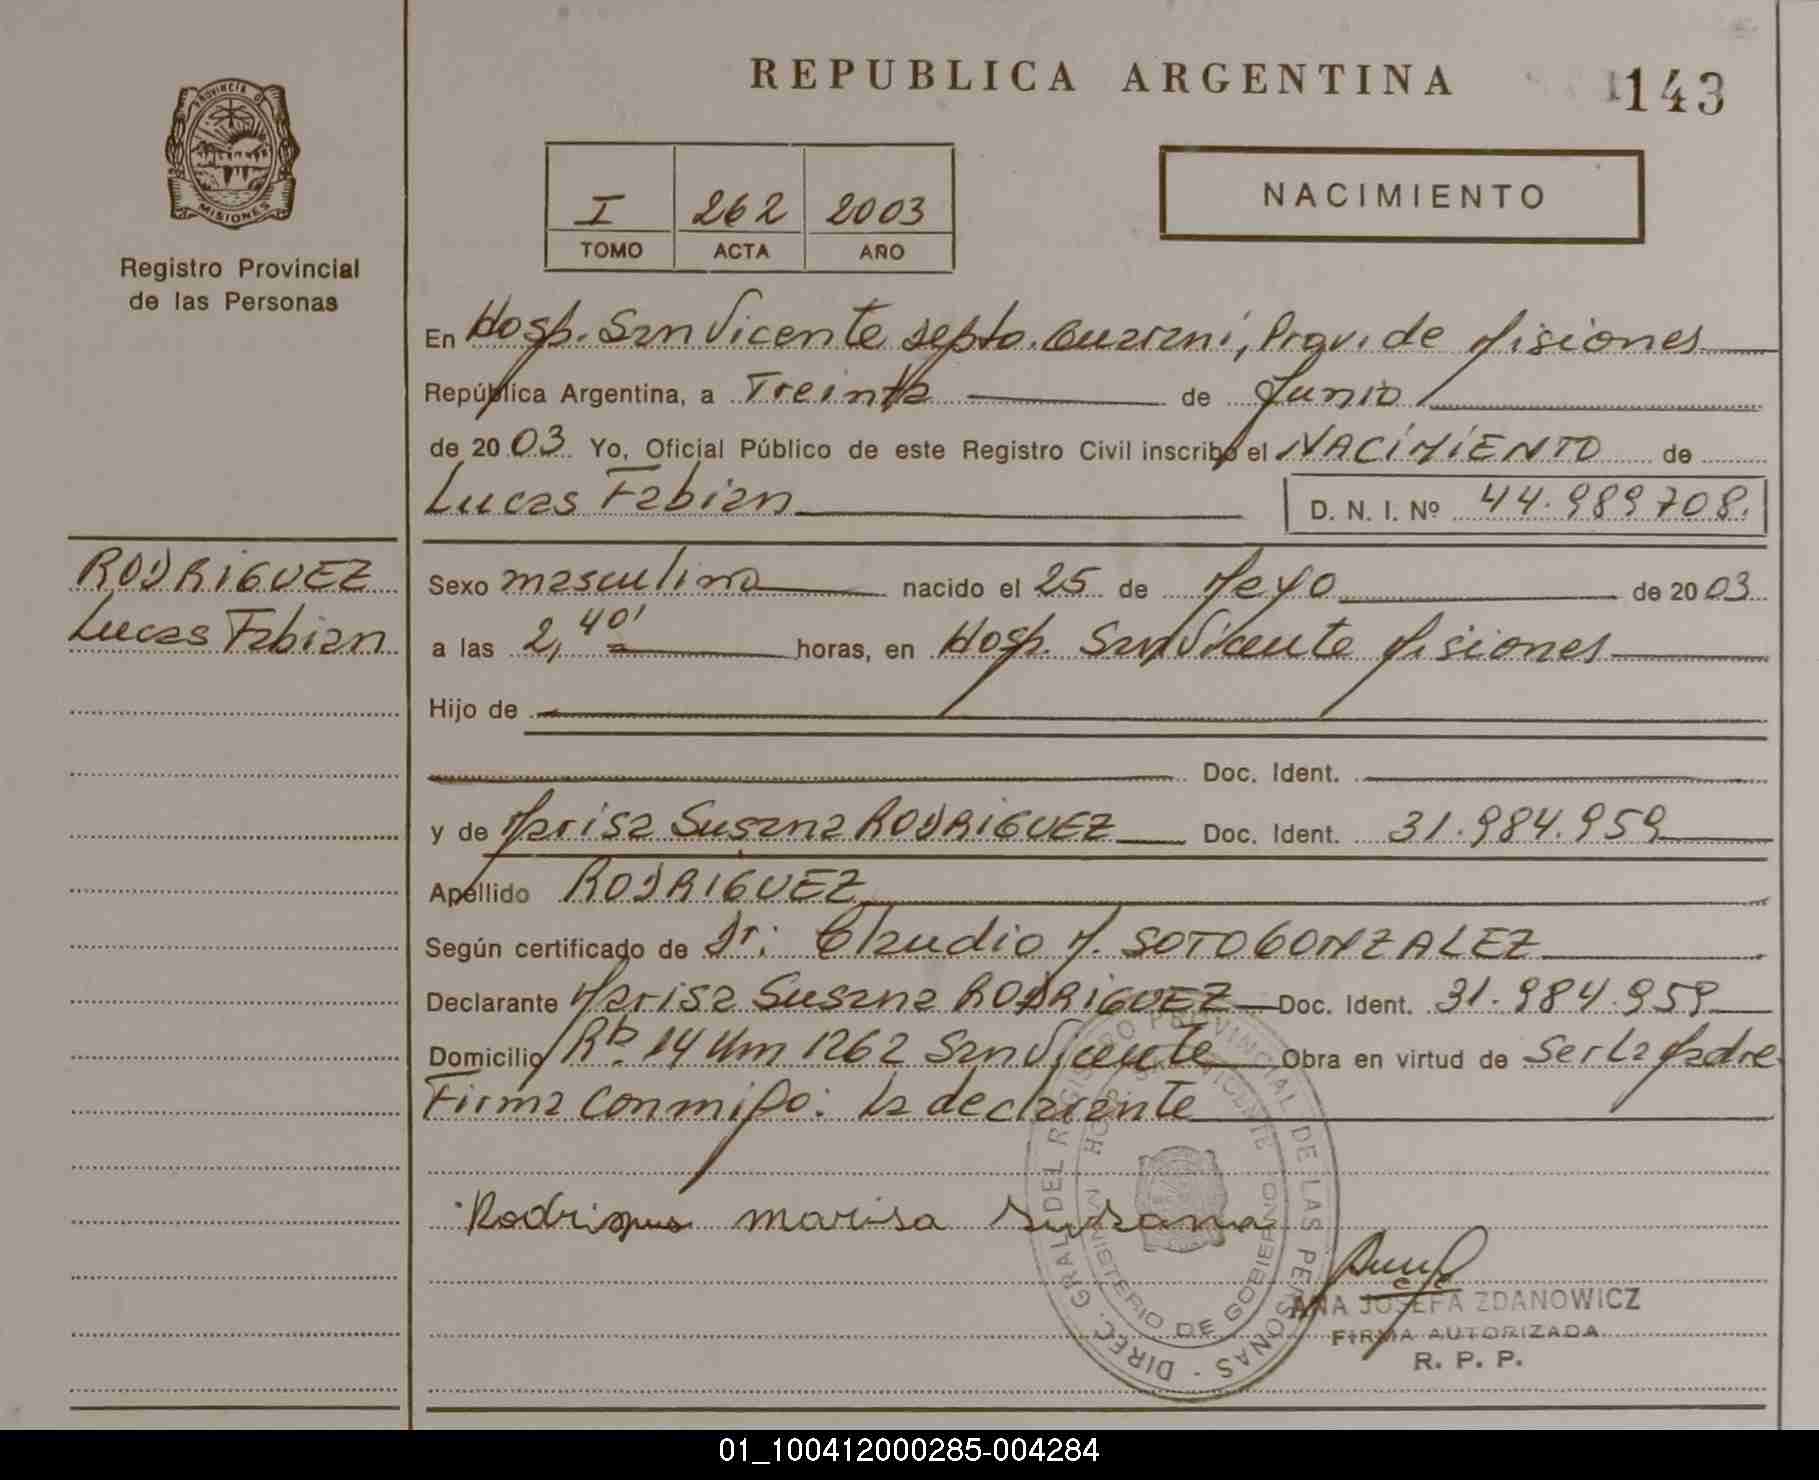 REPUBLICA ARGENTINA
143
PROVINCIA D
MISIONES
Registro Provincial
de las Personas
I 262 2003
TOMO ACTA AÑO
NACIMIENTO
En Hosp. San Vicente Depto. Guarani, Prov. de Misiones
República Argentina, a Treinta de Junio
de 2003 Yo, Oficial Público de este Registro Civil inscribo el NACIMIENTO de
Lucas Fabian D. N. I. Nº 44.989708.
RODRIGUEZ
Lucas Fabian
Sexo masculino nacido el 25 de Mayo de 2003
a las 2,40' horas, en Hosp. San Vicente Misiones
Hijo de
Doc. Ident.
y de Marisa Susana RODRIGUEZ Doc. Ident. 31.984.959
Apellido RODRIGUEZ
Según certificado de Dr: Claudio M. SOTO GONZALEZ
Declarante Marisa Susana RODRIGUEZ Doc. Ident. 31.984.959
Domicilio Rta. 14 Km 1262 San Vicente Obra en virtud de Ser La Madre
Firma Conmigo: La declarante
Rodrigues marisa susana
DIREC. GRAL DEL REGISTRO PROVINCIAL DE LAS PERSONAS
HOSP. SAN VICENTE
MINISTERIO DE GOBIERNO
ANA JOSEFA ZDANOWICZ
FIRMA AUTORIZADA
R. P. P.
01_100412000285-004284